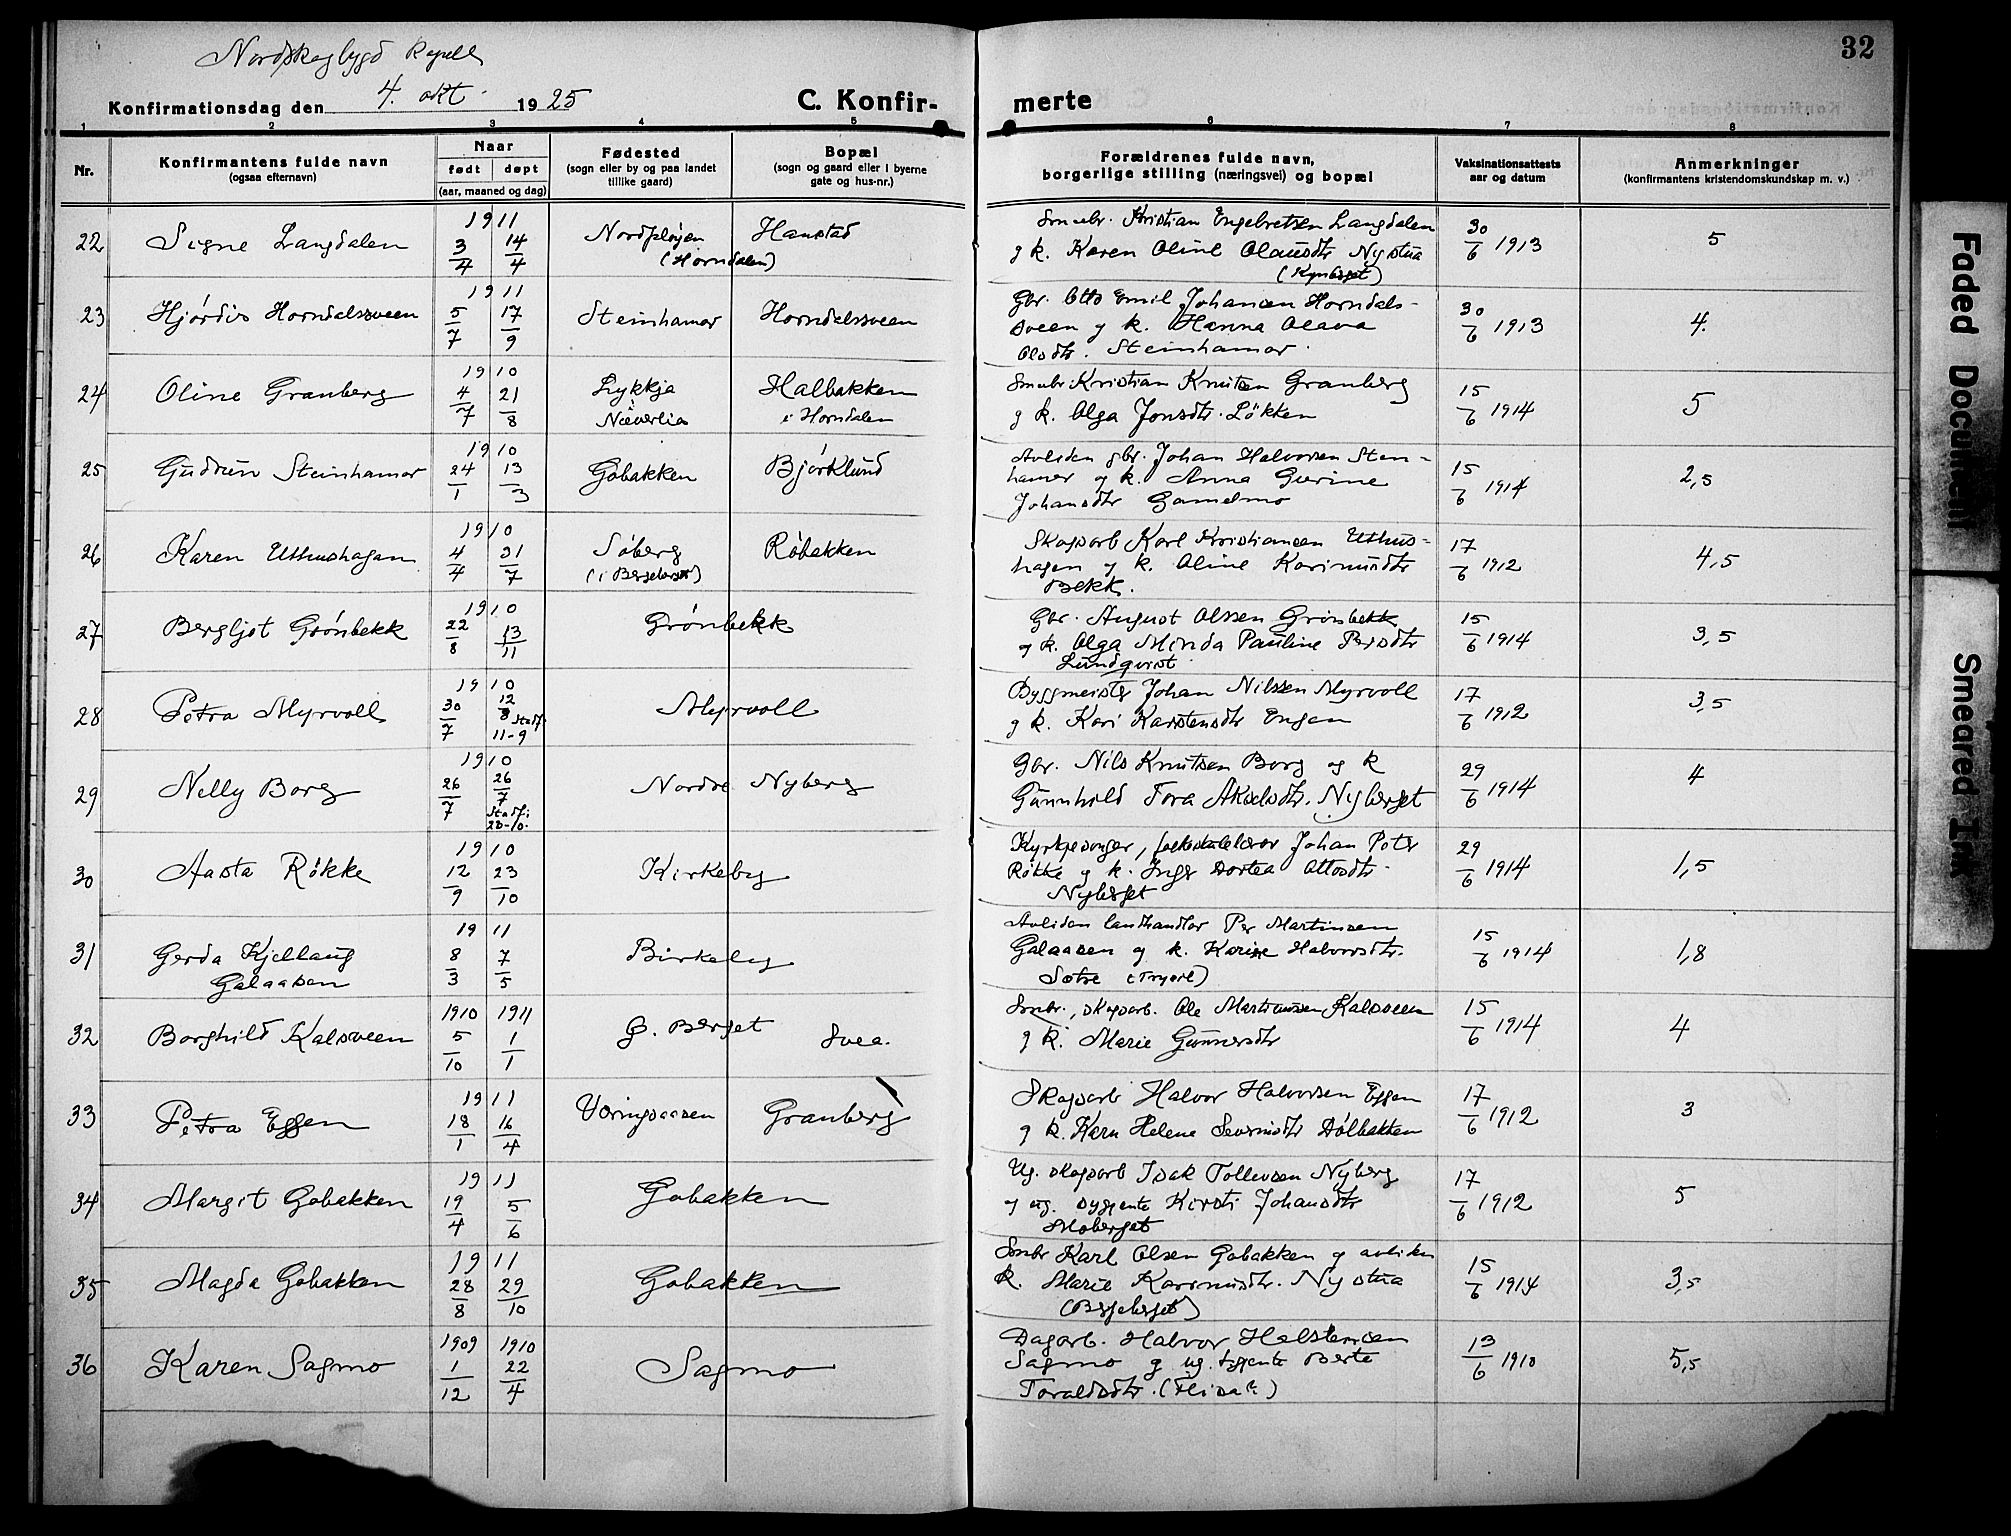 Nordskogbygd kapell
32
Konfirmationsdag den 4. okt. 1925
C. Konfir-
merte
1 2 3 4 5 6 7 8
Nr.
Konfirmantens fulde navn
(ogsaa efternavn)
Naar
født døpt
(aar, maaned og dag)
Fødested
(sogn eller by og paa landet
tillike gaard)
Bopæl
(sogn og gaard eller i byerne
gate og hus-nr.)
Forældrenes fulde navn,
borgerlige stilling (næringsvei) og bopæl
Vaksinationsattests
aar og datum
Anmerkninger
(konfirmantens kristendomskundskap m. v.)
22 Signe Langdalen 1911 3/4 14/4 (Horndalen) Hanstad
Smbr. Kristian Engebretsen Langdalen
og k. Karen Oline Olausdtr Nystua
(Kynberget)
30/6 1913 5
23 Hjórdis Horndalssveen 1911 5/7 17/9 Steinhamar Horndalssveen
Gbr. Otto Emil Johansen Horndals-
sveen og k. Hanna Olava
Olsdtr. Steinhamar.
30/6 1913 4.
24 Oline Granberg 1910 4/7 21/8 Lykkja Næverlia Halbakken
i Horndalen
Smbr Kristian Knutsen Granberg
og k. Olga Jonsdtr. Lókken
15/6 1914 5
25 Gudrun Steinhamar 1910 24/1 13/3 Gobakken Bjórklund
Avliden gbr. Johan Halvorsen Stein-
hamar og k. Anna Gurine
Johansdtr Gamelmo
15/6 1914 2,5
26 Karen Uthushagen 1910 4/4 31/7 Sóberg
(i Bergeberget) Róbakken
Skogsarb Karl Kristiansen Uthus-
hagen og k. Oline Karimusdtr
Bekk.
17/6 1912 4,5
27 Bergljot Grónbekk 1910 22/8 13/11 Grónbekk
Gbr. August Olssen Grónbekk
og k. Olga Minda Pauline Persdtr
Lundqvist
15/6 1914 3,5
28 Petra Myrvoll 1910 30/7 12/8 Stadf. 11-9 Myrvoll
Byggmeister Johan Nilssen Myrvoll
og k. Kari Karstensdtr Engen
17/6 1912 3,5
29 Nelly Borg 1910 26/7 26/7 Stadf: 23-10. Nordre Nyberg
Gbr. Nils Knutsen Borg og k
Gunnhild Tora Akselsdtr. Nyberget
29/6 1914 4
30 Aasta Rókke 1910 12/9 23/10 Kirkeby
Kyrkjesongar, folkeskulelærar Johan Peter
Rókke og k. Inger Dortea Ottosdtr.
Nyberget
29/6 1914 1,5
31 Gerda Kjellaug
Galaasen 1911 8/3 7/5 Birkeby
Avliden landhandlar Per Martinsen
Galaasen og k. Karine Halvorsdtr.
Sætre (Trysil)
15/6 1914 1,8
32 Borghild Kalsveen 1910 5/10 1911 1/1 G. Berget Svea.
Smbr., skogsarb. Ole Martinusen Kalsveen
og k. Marie Gunnersdtr
15/6 1914 4
33 Petra Eggen 1911 18/1 16/4 Væringsaasen Granberg
Skogsarb Halvor Halvorsen Eggen
og k. Karn Helene Severinsdtr Dólbakken
17/6 1912 3
34 Margit Gobakken 1911 19/4 5/6 Gobakken
Ug. skogsarb Isak Tollevsen Nyberg
og ug. Kirsti Johansdtr
Moberget
17/6 1912 5
35 Magda Gobakken 1911 28/8 29/10 Gobakken
Smbr Karl Olsen Gobakken og avliden
k. Marie Karimusdtr. Nystua
(Bergeberget)
15/6 1914 3,5
36 Karen Sagmo 1909 1/12 1910 22/4 Sagmo
Dagarb. Halvor Helstensen
Sagmo og ug. tjgente Berte
Toraldsdtr. (Flisa?)
13/6 1910 5,5
Faded Document
Smeared Ink